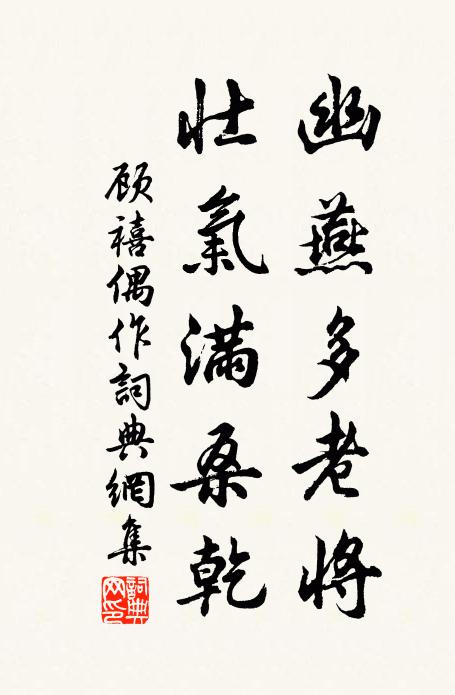 幽燕多老將
壯氣滿桑乾
顾禧偶作詞典網集
詞典网印